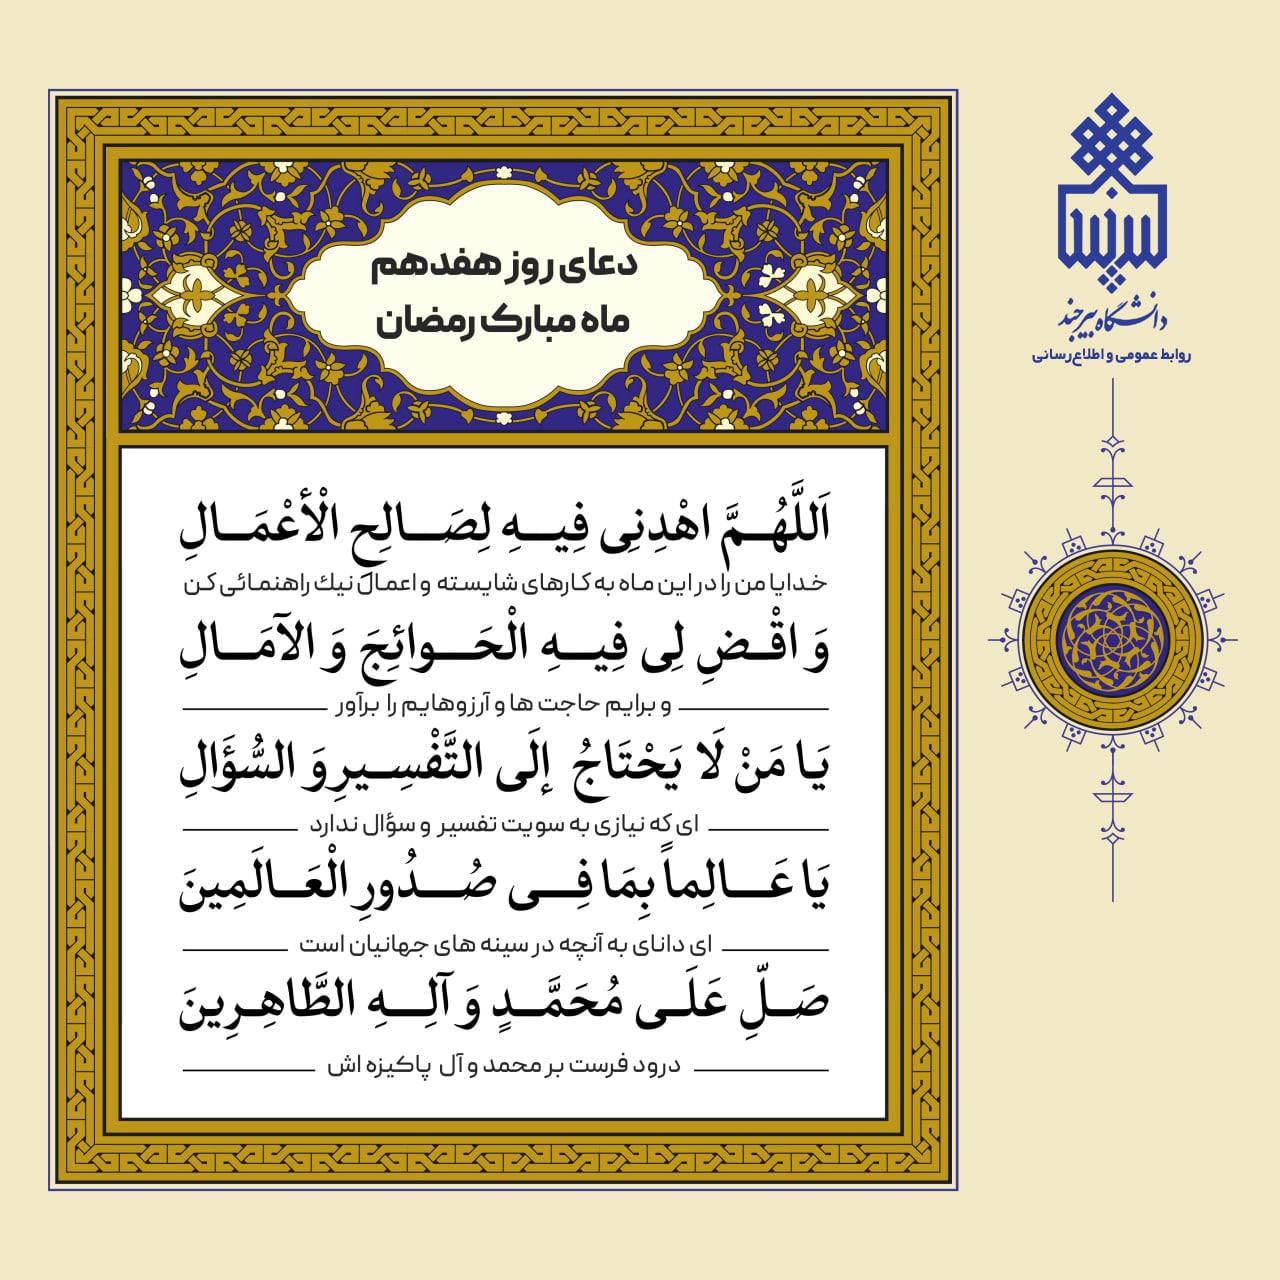 دعای روز هفدهم
ماه مبارک رمضان
اَللَّهُمَّ اهْدِنِی فِیهِ لِصَالِحِ الْأَعْمَالِ
خدایا من را در این ماه به کارهای شایسته و اعمال نیك راهنمائی کن
وَ اقْضِ لِی فِیهِ الْحَوائِجَ وَ الآمَالِ
و برایم حاجت ها و آرزوهایم را برآور
یَا مَنْ لَا یَحْتَاجُ إلَی التَّفْسِیرِ وَ السُّؤَالِ
ای که نیازی به سویت تفسیر و سؤال ندارد
یَا عَالِماً بِمَا فِی صُدُورِ الْعَالَمِینَ
ای دانای به آنچه در سینه های جهانیان است
صَلِّ عَلَی مُحَمَّدٍ وَ آلِهِ الطَّاهِرِینَ
درود فرست بر محمد و آل پاکیزه اش
دانشگاه بیرجند
روابط عمومی و اطلاع‌رسانی